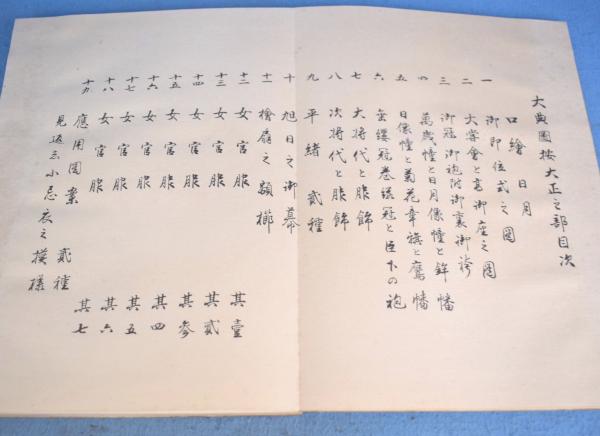 大典圖按大正之部目次
口繪 日月
一 御即位式之圖
二 大嘗會と高御座之圖
三 御冠御袍附御裏御袴
四 萬歳幢と日月像幢と鉾幡
五 日像幢と菊花章旗と鷹幡
六 金鏤冠巻纓冠と臣下の袍
七 大将代と服飾
八 次将代と服飾
九 平緒 貳種
十 旭日之御幕
十一 檜扇之顕櫛
十二 女官服 其壹
十三 女官服 其貳
十四 女官服 其參
十五 女官服 其四
十六 女官服 其五
十七 女官服 其六
十八 女官服 其七
十九 應用圖業 貳種
見返シ小忌衣之模樣